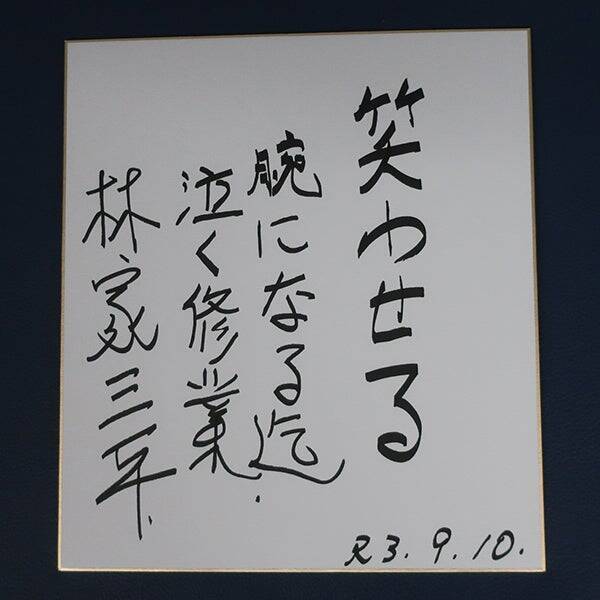 笑わせる
腕になる迄
泣く修業
林家三平
R3.9.10.